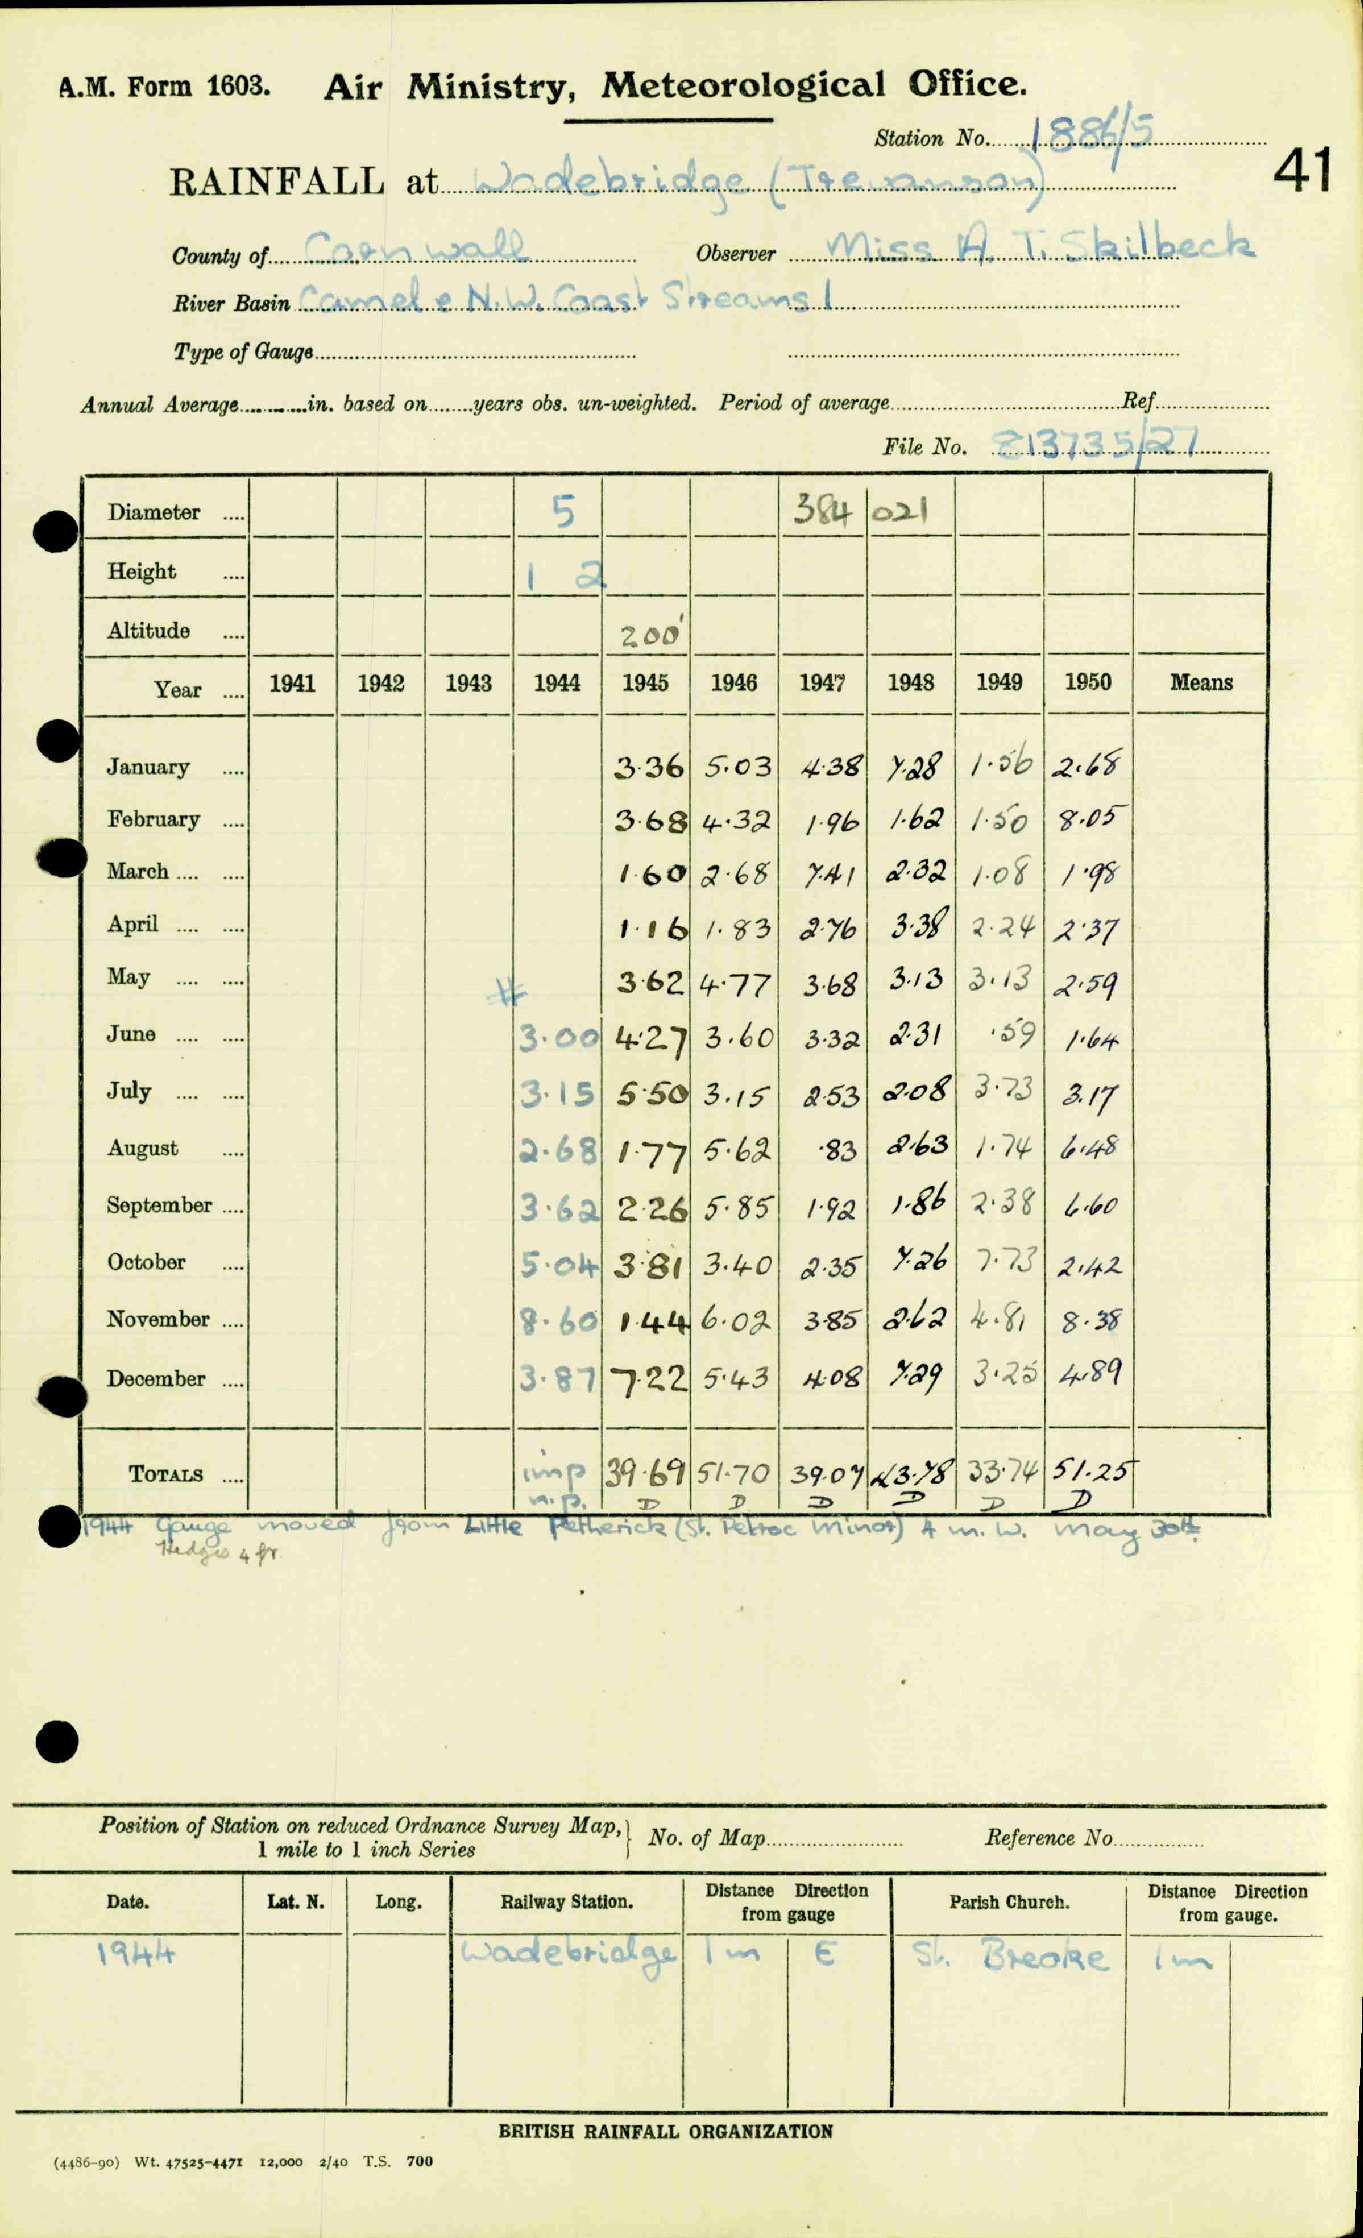 A.M. Form 1603. Air Ministry, Meteorological Office.
Station No. 1886/5
41
RAINFALL at Wadebridge (Trevanson)
County of Cornwall Observer Miss A. T. Skilbeck
River Basin Camel & N.W. Coast Streams 1
Type of Gauge
Annual Average in. based on years obs. un-weighted. Period of average Ref
File No. 813735/27
Diameter 5 384 021
Height 1 2
Altitude 200'
Year 1941 1942 1943 1944 1945 1946 1947 1948 1949 1950 Means
January 3.36 5.03 4.38 7.28 1.56 2.68
February 3.68 4.32 1.96 1.62 1.50 8.05
March 1.60 2.68 7.41 2.32 1.08 1.98
April 1.16 1.83 2.76 3.38 2.24 2.37
May # 3.62 4.77 3.68 3.13 3.13 2.59
June 3.00 4.27 3.60 3.32 2.31 .59 1.64
July 3.15 5.50 3.15 2.53 2.08 3.73 3.17
August 2.68 1.77 5.62 .83 2.63 1.74 6.48
September 3.62 2.26 5.85 1.92 1.86 2.38 6.60
October 5.04 3.81 3.40 2.35 7.26 7.73 2.42
November 8.60 1.44 6.02 3.85 2.62 4.81 8.38
December 3.87 7.22 5.43 4.08 7.29 3.25 4.89
TOTALS imp 39.69 51.70 39.07 43.78 33.74 51.25
n.p. D D D D D D
1944 Gauge moved from Little Petherick (St. Petroc Minor) 4 m. W. May 30th.
Hedges 4 ft
Position of Station on reduced Ordnance Survey Map, } No. of Map Reference No
1 mile to 1 inch Series
Date. Lat. N. Long. Railway Station. Distance Direction from gauge Parish Church. Distance Direction from gauge.
1944 Wadebridge 1 m E St. Breoke 1 m
BRITISH RAINFALL ORGANIZATION
(4486-90) Wt. 47525-4471 12,000 2/40 T.S. 700